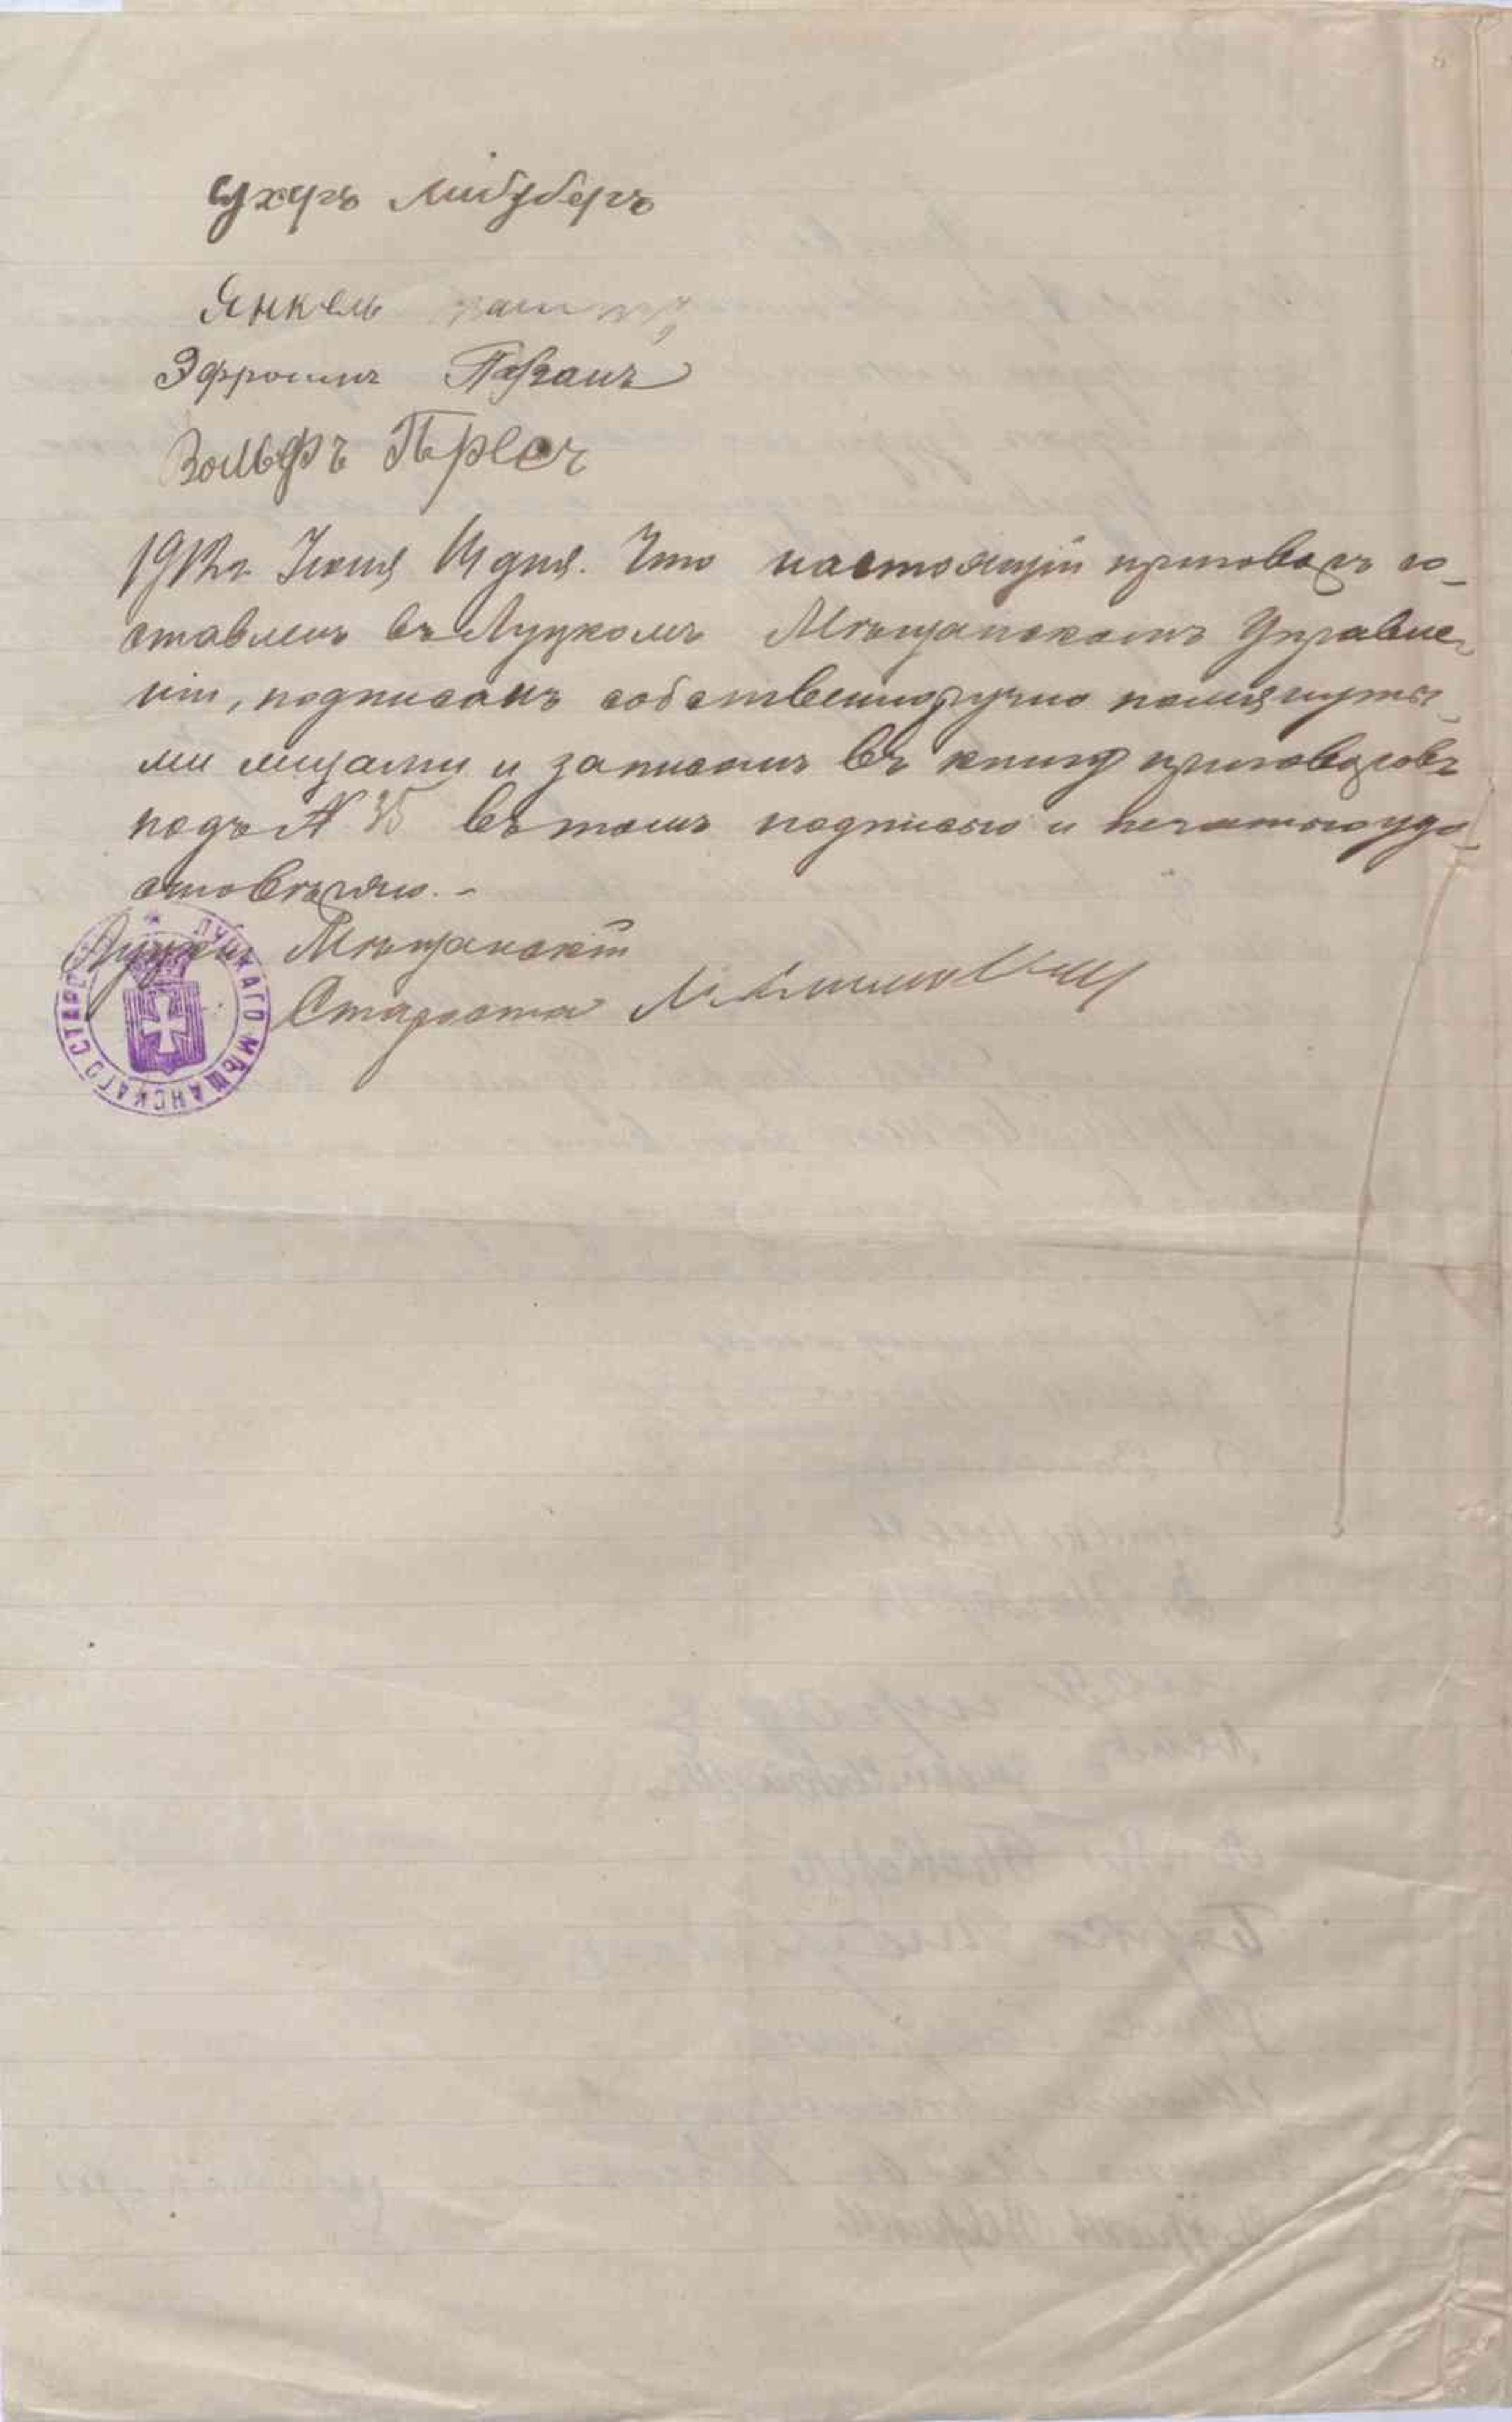 Сухеръ Либуберъ
Янкель
Эфроимъ
Вольфъ
1912 г. Іюня 14 дня. Что настоящій приговоръ со-
ставленъ въ Луцкомъ Мѣщанскомъ Управле-
ніи, подписанъ собственноручно помянуты-
ми лицами и записанъ въ книгу приговоровъ
подъ № 35 въ томъ подписью и печатью удо-
стовѣряю. -
Луцкій Мѣщанскій
Староста
ЛУЦКАГО МѢЩАНСКАГО СТАРО